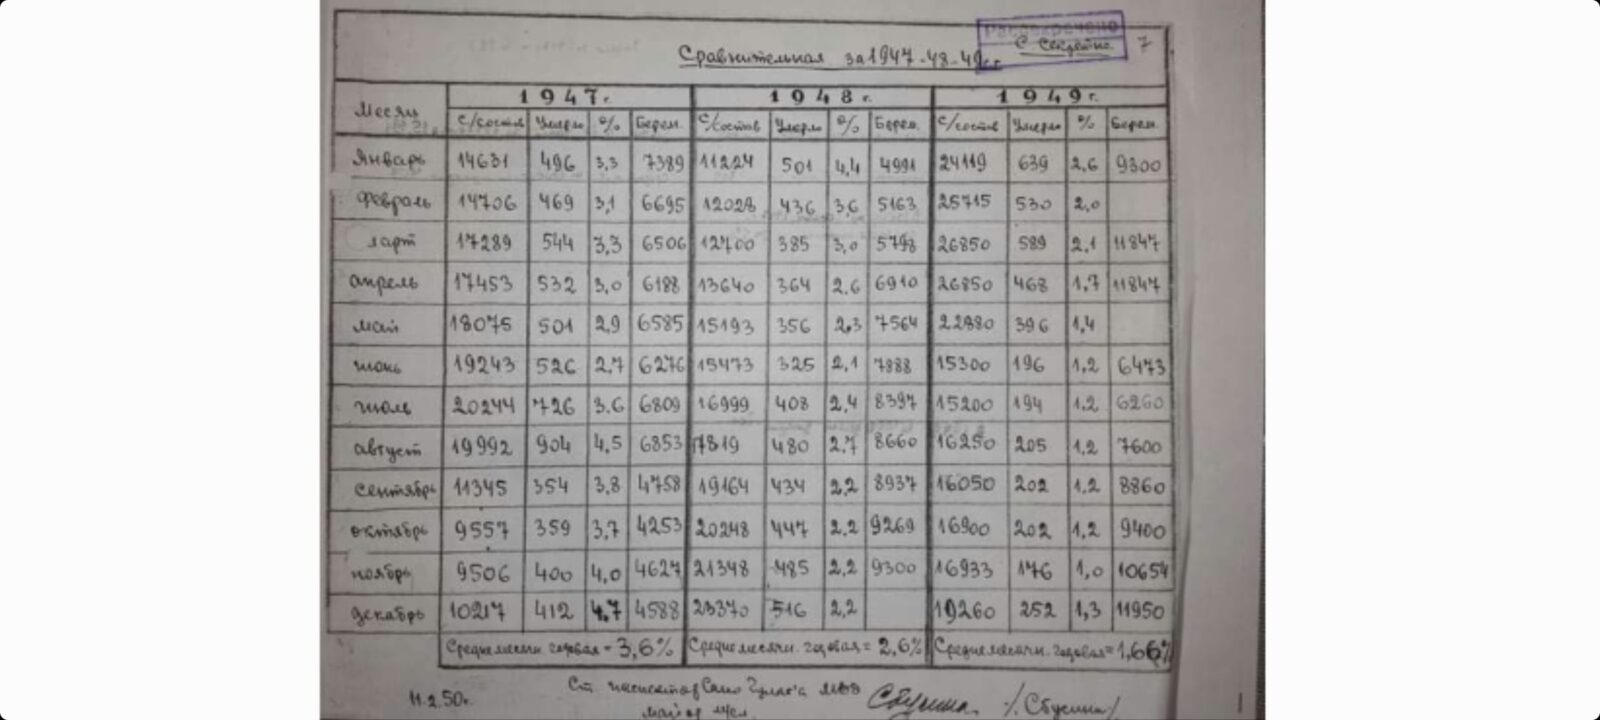 Рассекречено
С. Секретно. 7
Сравнительная за 1947-48-49 г.г.
Месяц 1947 г. 1948 г. 1949 г.
С/состав Умерло % Берем. С/состав Умерло % Берем. С/состав Умерло % Берем.
Январь 14631 496 3,3 7389 11224 501 4,4 4991 24119 639 2,6 9300
февраль 14706 469 3,1 6695 12028 436 3,6 5163 25715 530 2,0
март 17289 544 3,3 6506 12700 385 3,0 5798 26850 589 2,1 11847
апрель 17453 532 3,0 6188 13640 364 2.6 6910 26850 468 1,7 11847
май 18075 501 2,9 6585 15193 356 2,3 7564 22880 396 1,4
июнь 19243 526 2,7 6276 15473 325 2,1 7888 15300 196 1,2 6473
июль 20244 726 3.6 6809 16999 408 2,4 8397 15200 194 1,2 6260
август 19992 904 4,5 6853 17819 480 2.7 8660 16250 205 1,2 7600
сентябрь 11345 354 3,8 4758 19164 434 2,2 8937 16050 202 1,2 8860
октябрь 9557 359 3,7 4253 20248 447 2,2 9269 16900 202 1,2 9400
ноябрь 9506 400 4,0 4627 21348 485 2,2 9300 16933 176 1,0 10654
декабрь 10217 412 4.7 4588 23370 516 2,2 19260 252 1,3 11950
Среднемесячн. годовая = 3,6% Среднемесячн. годовая = 2,6% Среднемесячн. годовая = 1,66%
11.2.50г. Ст. инспектор Сано Гулаг'а МВД /Сбусина/
майор м/сл